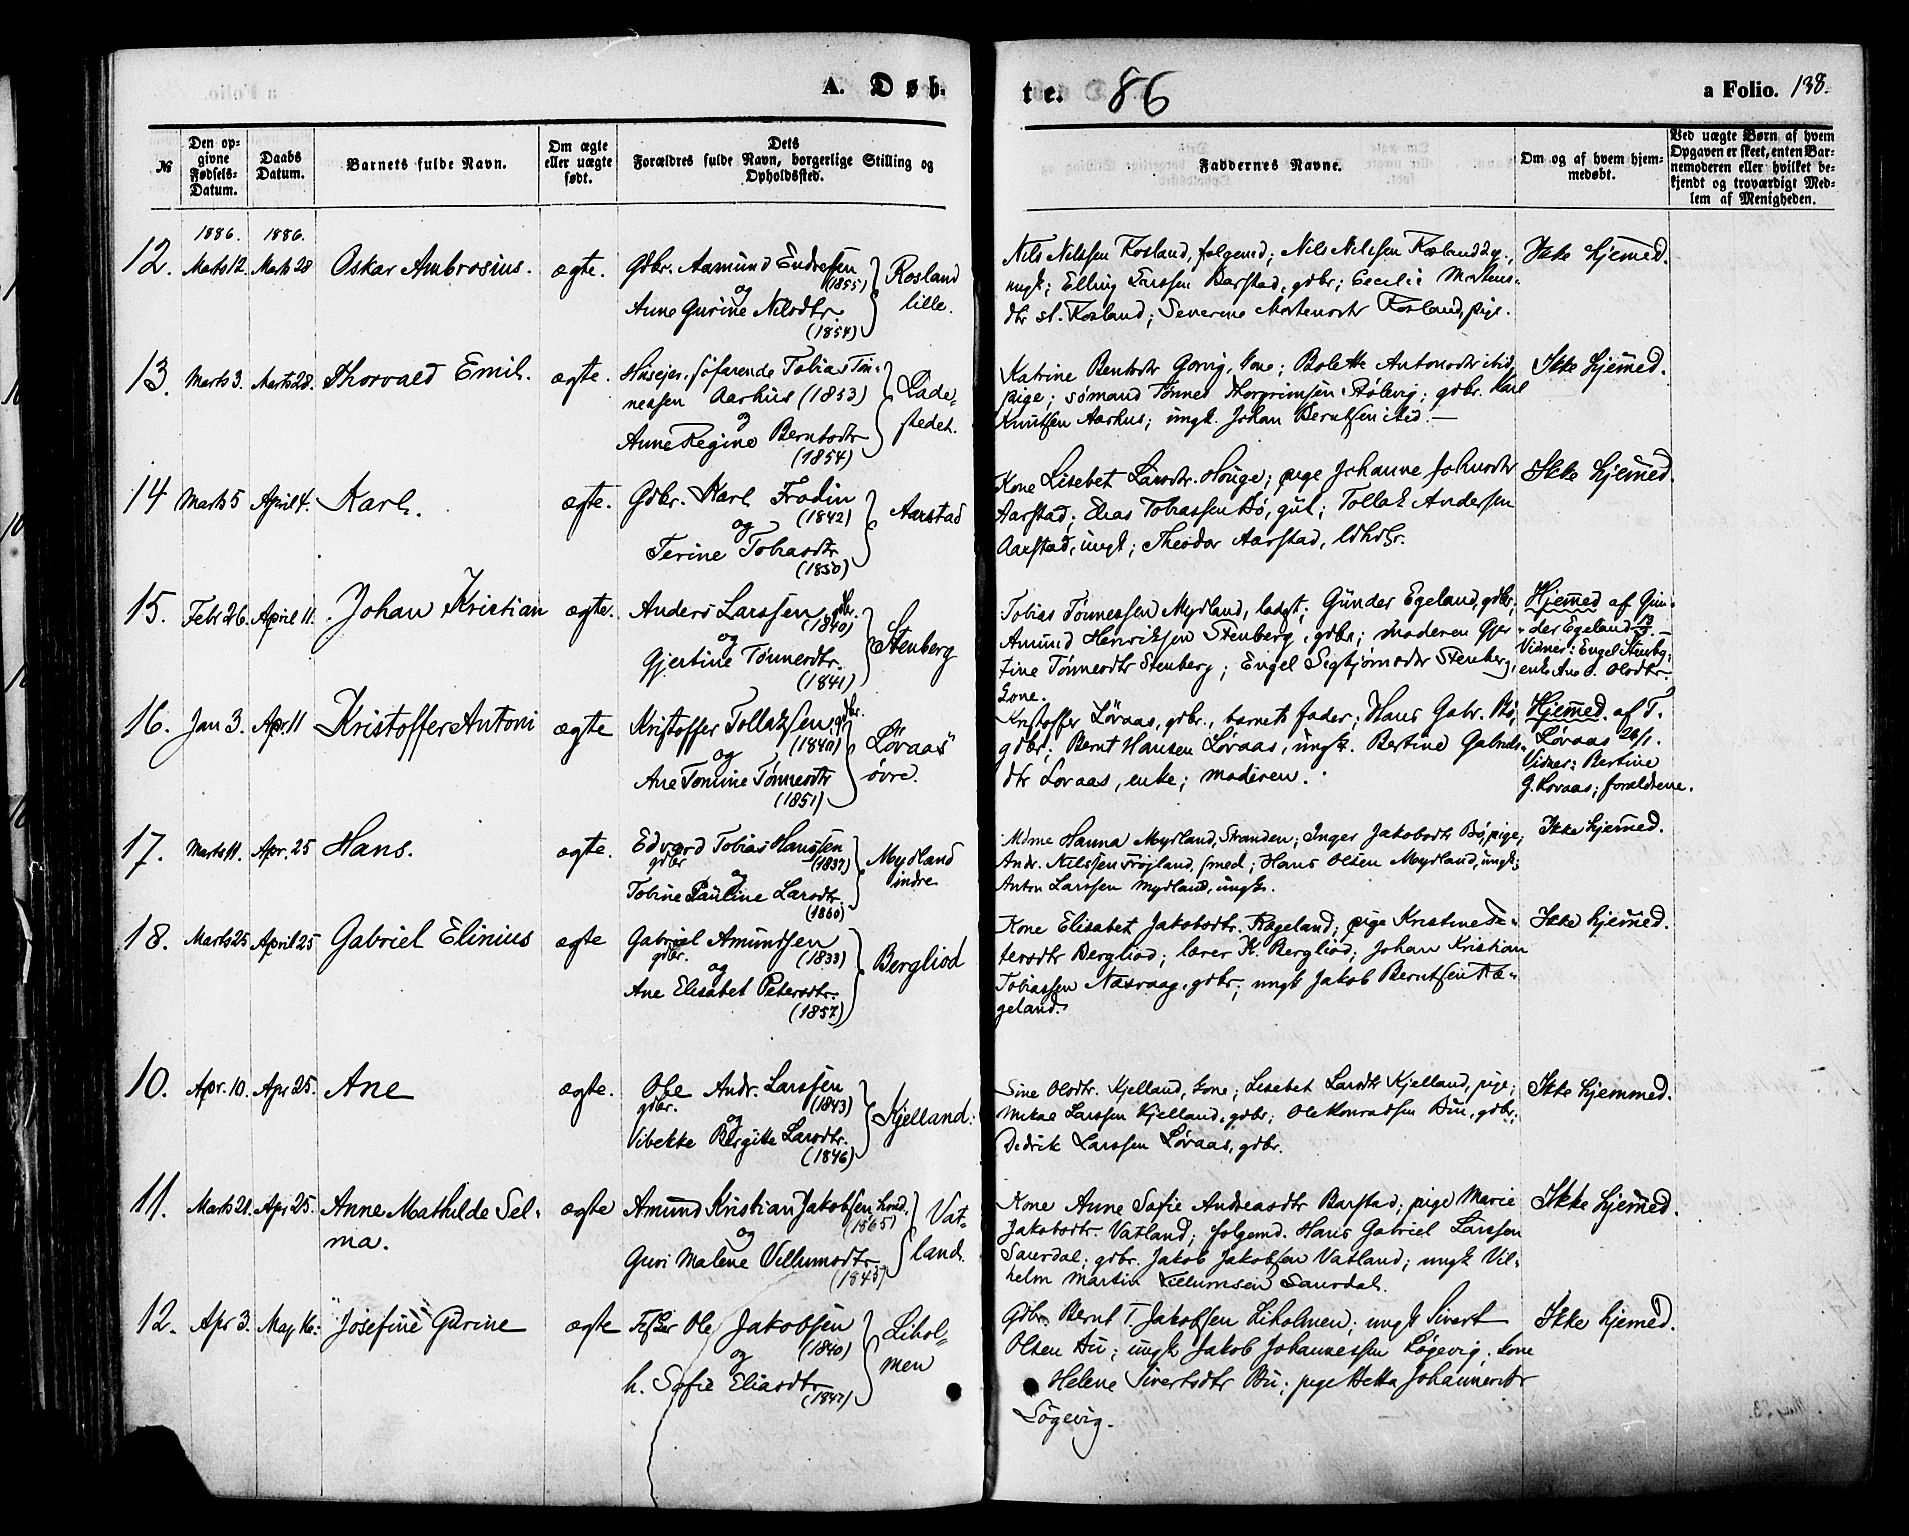 A. Døb-
te. 86
a Folio. 138.
№
Den op-
givne
Fødsels-
Datum.
Daabs
Datum.
Barnets fulde Navn.
Om ægte
eller uægte
født.
Dets
Forældres fulde Navn, borgerlige Stilling og
Opholdssted.
Faddernes Navne.
Om og af hvem hjem-
medøbt.
Ved uægte Børn af hvem
Opgaven er skeet, enten Bar-
nemoderen eller hvilket be-
kjendt og troværdigt Med-
lem af Menigheden.
1886. 1886.
12. Marts 12 Marts 28 Oskar Ambrosius. ægte. Gdbr. Aamund Endressen
(1855)
og
Anne Gurine Nilsdtr.
(1854)
Rosland
lille.
Nils Nilssen Rosland, folgemd; Nils Nilssen Rosland
ungk; Elling Larssen Barstad, gdbr; Cecilie Mortens-
dtr st. Rosland; Severine Mortensdtr Rosland, pige.
Ikke hjemed.
13. Marts 3. Marts 28. Thorvald Emil. ægte. Husejer, søfarende Tobias Tøn-
nessen Aarhus (1853)
og
Anne Regine Berntsdtr
(1854)
Lade-
stedet.
Katrine Berntsdtr Gorvig, kone; Bolette Antonsdtr ibid,
pige; sømand Tønnes Thorgrimsen Stølevig; gdbr. Karl
Knutsen Aarhus; ungk. Johan Berntsen ibid.—
Ikke hjemed.
14 Marts 5 April 4. Karl. ægte. Gdbr. Karl Frodin
(1842)
og
Terine Tobiasdtr
(1850)
Aarstad
Kone Lisebet Larsdtr. Houge; pige Johanne Johnsdtr
Aarstad; Elias Tobiassen Bø, gut; Tollak Andersen
Aarstad, ungk; Theodor Aarstad,
Ikke hjemed.
15. Febr 26. April 11. Johan Kristian ægte. Anders Larssen gdbr.
(1840)
og
Gjertine Tønnesdtr.
(1841)
Stenberg
Tobias Tønnessen Mydland, ladgt; Gunder Egeland, gdbr;
Amund Henriksen Stenberg, gdbr; moderen Gjer
tine Tønnesdtr Stenberg; Engel Sigbjørnsdtr Stenberg,
kone.
Hjemed af Gun-
der Egeland
Vidner: Engel Stenbg;
enke Ane S. Olsdtr.
16. Jan 3. Apr. 11 Kristoffer Antoni ægte Kristoffer Tollaksen gdbr.
(1840)
og
Ane Tomine Tønnesdtr
(1851)
Løvaas
øvre.
Kristoffer Løvaas, gdbr., barnets fader; Hans Gabr. Bø,
gdbr; Bernt Hansen Løvaas, ungk. Bertine Gabriels-
dtr Løvaas, enke; moderen.
Hjemed. af T.
Løvaas 26/1.
Vidner: Bertine
G. Løvaas; forældrene.
17. Marts 11. Apr. 25 Hans. ægte. Edvard Tobias Hanssen
gdbr (1837)
og
Tobine Pauline Larsdtr.
(1860)
Mydland
indre
Mdme Hanna Mydland, Stranden; Inger Jakobsdtr Bø, pige;
Andr. Nilssen Frøyland, smed; Hans Olsen Mydland, ungk;
Anton Larssen Mydland, ungk.
Ikke hjemed.
18. Marts 25 April 25 Gabriel Elinius ægte Gabriel Amundsen
gdbr. (1833)
og
Ane Elisabet Petersdtr.
(1857)
Bergliod
Kone Elisabet Jakobsdtr. Rageland; pige Kristine Pe-
tersdtr Bergliod; lærer K. Bergliod; Johan Kristian
Tobiassen Næsvaag, gdbr; ungk Jakob Berntsen Ra-
geland.
Ikke hjemed.
10. Apr. 10. Apr 25. Ane ægte. Ole Andr. Larssen
gdbr. (1843)
og
Vibekke Birgitte Larsdtr.
(1846)
Kjelland.
Sine Olsdtr. Kjelland, kone; Lisebet Larsdtr Kjelland, pige;
Mikal Larssen Kjelland, gdbr; Ole Konradsen Bu, gdbr;
Didrik Larssen Løvaas, gdbr.
Ikke hjemmed.
11. Marts 21. Apr 25. Anne Mathilde Sel-
ma. ægte Amund Kristian Jakobsen husd.
(1865)
og
Guri Malene Villumsdtr
(1843)
Vat-
land.
Kone Anne Sofie Andreasdtr Barstad; pige Marie
Jakobsdtr. Vatland; folgemd. Hans Gabriel Larssen
Saurdal; gdbr. Jakob Jakobsen Vatland; ungk Vil-
helm Martin Villumsen Saurdal.
Ikke hjemed.
12. Apr 3. Maj 16. Josefine Gurine ægte Fisker Ole Jakobsen
(1840)
og
h. Sofie Eliasdtr
(1842)
Lihol-
men
Gdbr. Bernt T. Jakobsen Liholmen; ungk Sivert
Olsen Bu; ungk Jakob Johannessen Løgevig; kone
Helene Sivertsdtr Bu; pige Metta Johannesdtr
Løgevig.
Ikke hjemed.